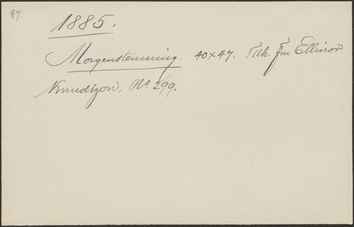 97.
1885.
Morgenstemning. 40x47. Tilh. Fru Ellinor
Knudtzon. No 299.